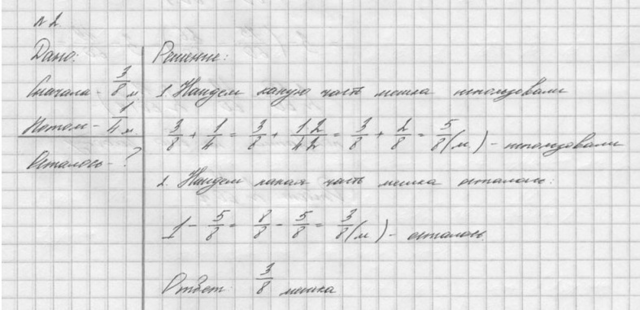 № 2
Дано:
Сначала - 3/8 м
Потом - 1/4 м
Осталось - ?
Решение:
1 Найдем какую часть мешка использовали
3/8 + 1/4 = 3/8 + 1·2/4·2 = 3/8 + 2/8 = 5/8 (м) - использовали
2 Найдем какая часть мешка осталась:
1 - 5/8 = 8/8 - 5/8 = 3/8 (м) - осталось
Ответ: 3/8 мешка